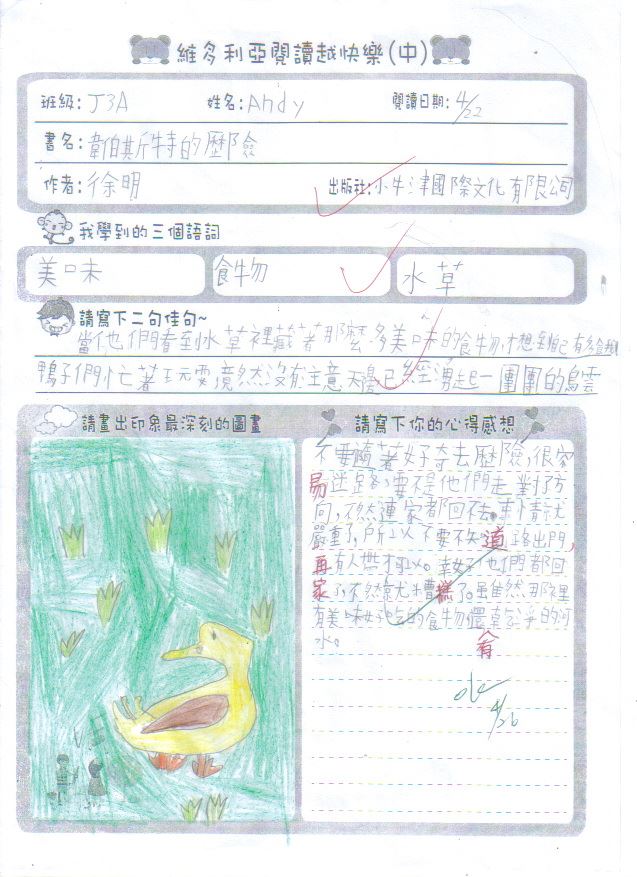 維多利亞閱讀越快樂(中)
班級: J3A 姓名: Andy 閱讀日期: 4/22
書名: 韋伯斯特的歷險
作者: 徐明 出版社: 小牛津國際文化有限公司
我學到的三個語詞
美味 食物 水草
請寫下二句佳句~
當他們看到水草裡藏著那麼多美味的食物,才想到自己有多餓
鴨子們忙著玩耍竟然沒有主意天邊已經湧起一團團的烏雲
請畫出印象最深刻的圖畫
請寫下你的心得感想
不要隨著好奇去歷險,很容
易迷路,要不是他們走對了方
向,不然連家都回不去。事情就
嚴重了,所以不要不知道路出門,
再有人帶才可以。幸好他們都回
家了,不然就糟糕了。雖然那裡
有美味好吃的食物還有乾淨的河
水。
有
ok
4/26